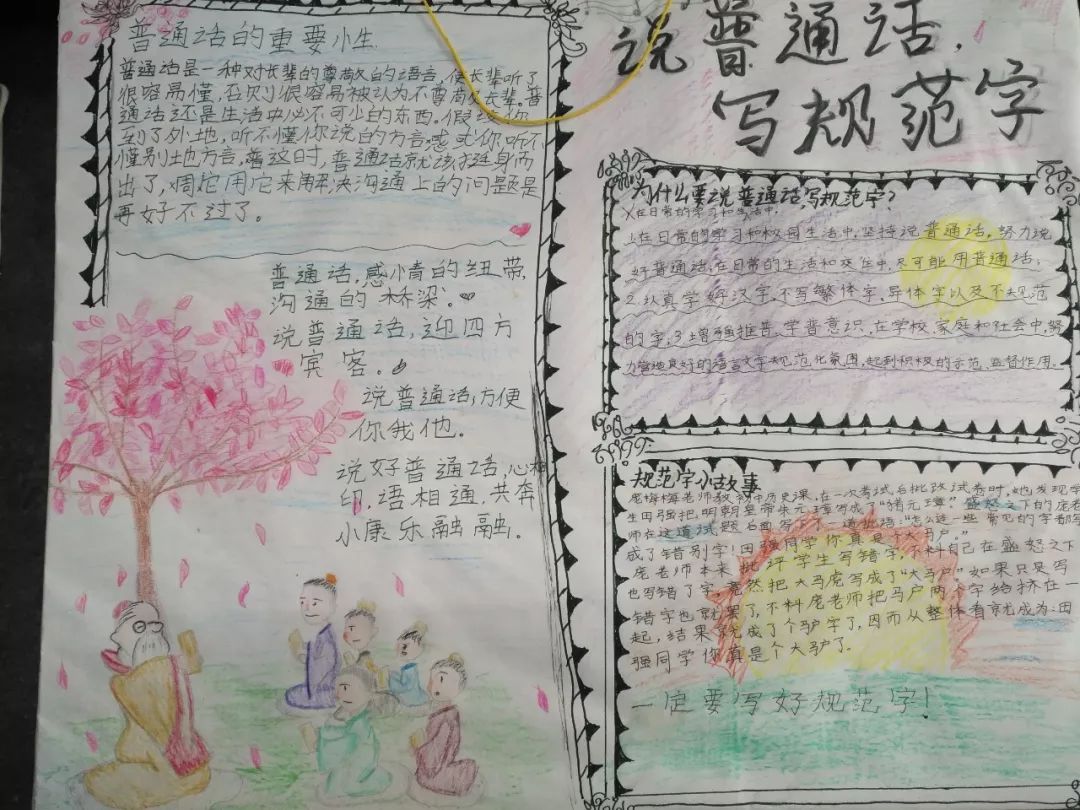 普通话的重要小生
普通话是一种对长辈的尊敬的语言,使长辈听了
很容易懂,否则很容易被认为不尊尚长辈。普
通话还是生活中必不可少的东西。假设你
到了外地,听不懂你说的方言,或你听不
懂别地方言,普这时,普通话就该挺身而
出了,用它来解决沟通上的问题是
再好不过了。
普通话,感情的纽带,
沟通的桥梁。
说普通话,迎四方
宾客。
说普通话,方便
你我他。
说好普通话,心相
印,语相通,共奔
小康乐融融。
说普通话,
写规范字
为什么要说普通话写规范字?
在日常的学习和生活中,
1.在日常的学习和校园生活中,坚持说普通话,努力说
好普通话,在日常的生活和交往中,尽可能用普通话;
2.认真学好汉字,不写繁体字,异体字以及不规范
的字;3.增强推普、学普意识,在学校,家庭和社会中,努
力营造良好的语言文字规范化氛围,起到积极的示范、监督作用.
规范字小故事
庞梅梅老师教初中历史课,在一次考试后批改试卷时,她发现学
生田强把明朝皇帝朱元璋写成了“猪元璋”.盛怒之下的庞老
师在这道试题后面写了一道批语:“怎么连一些常见的字都写
成了错别字!田强同学你真是个大马户。”
庞老师本来批评学生写错字,不料自己在盛怒之下
也写错了字,竟然把大马虎写成了“大马户”如果只是写
错字也就罢了,不料庞老师把马户两个字给挤在一
起,结果就成了个驴字了,因而从整体看就成为:田
强同学你真是个大驴了.
一定要写好规范字!